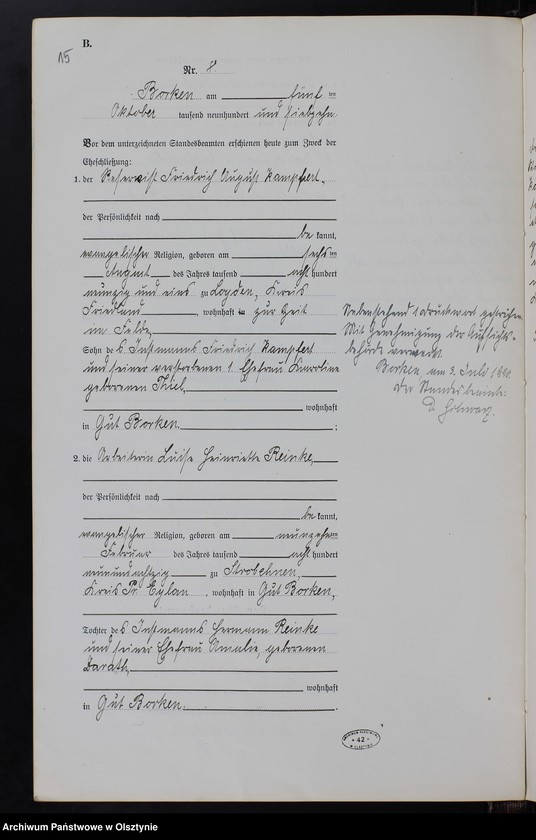 15
B.
Nr. 8.
Borken am fünf ten
Oktober tausend neunhundert und siebzehn.
Vor dem unterzeichneten Standesbeamten erschienen heute zum Zweck der
Eheschließung:
1. der Reservist Friedrich August Kampfert.
der Persönlichkeit nach
be kannt,
evangelischer Religion, geboren am sechs ten
August des Jahres tausend acht hundert
neunzig und eins zu Loyden, Kreis
Friedland, wohnhaft in zur Zeit
im Felde,
Sohn des Instmanns Friedrich Kampfert
und seiner verstorbenen 1. Ehefrau Karoline
geborenen Thiel,
wohnhaft
in Gut Borken ;
2. die Arbeiterin Luise Heinriette Reinke,
der Persönlichkeit nach
be kannt,
evangelischer Religion, geboren am neunzehn ten
Februar des Jahres tausend acht hundert
neunundachtzig zu Strobehnen,
Kreis Pr. Eylau, wohnhaft in Gut Borken,
Tochter des Instmanns Hermann Reinke
und seiner Ehefrau Amalie, geborenen
Barath,
wohnhaft
in Gut Borken.
Nebenstehend 1 Druckwort gestrichen
Mit Genehmigung der Aufsichts-
behörde vermerkt.
Borken, am 3. Juli
Der Standesbeamte:
42
Archiwum Państwowe w Olsztynie